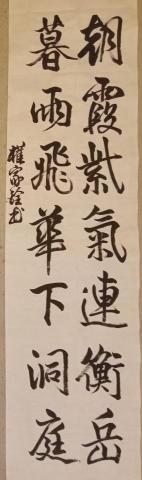 朝霞紫氣連衡岳
暮雨飛華下洞庭